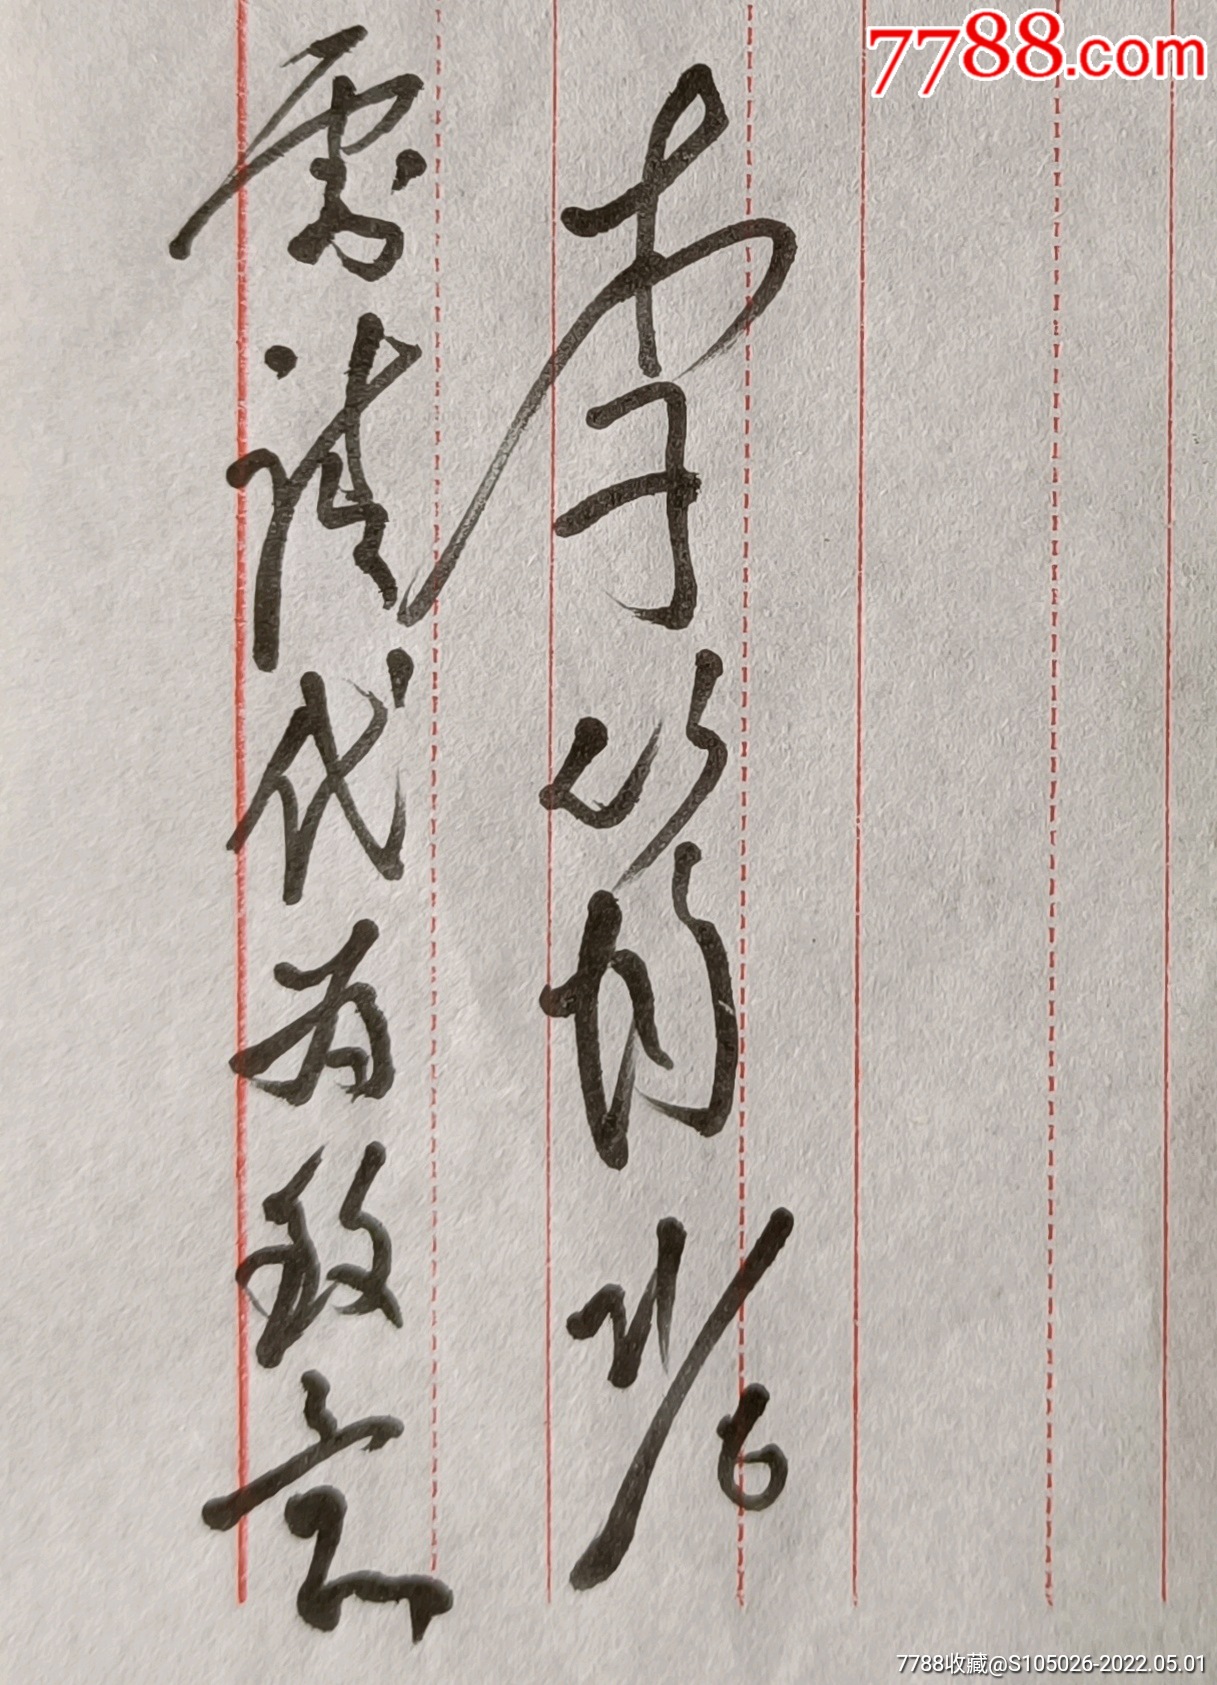 李
處请代为致意
7788.com
7788收藏@S105026-2022.05.01